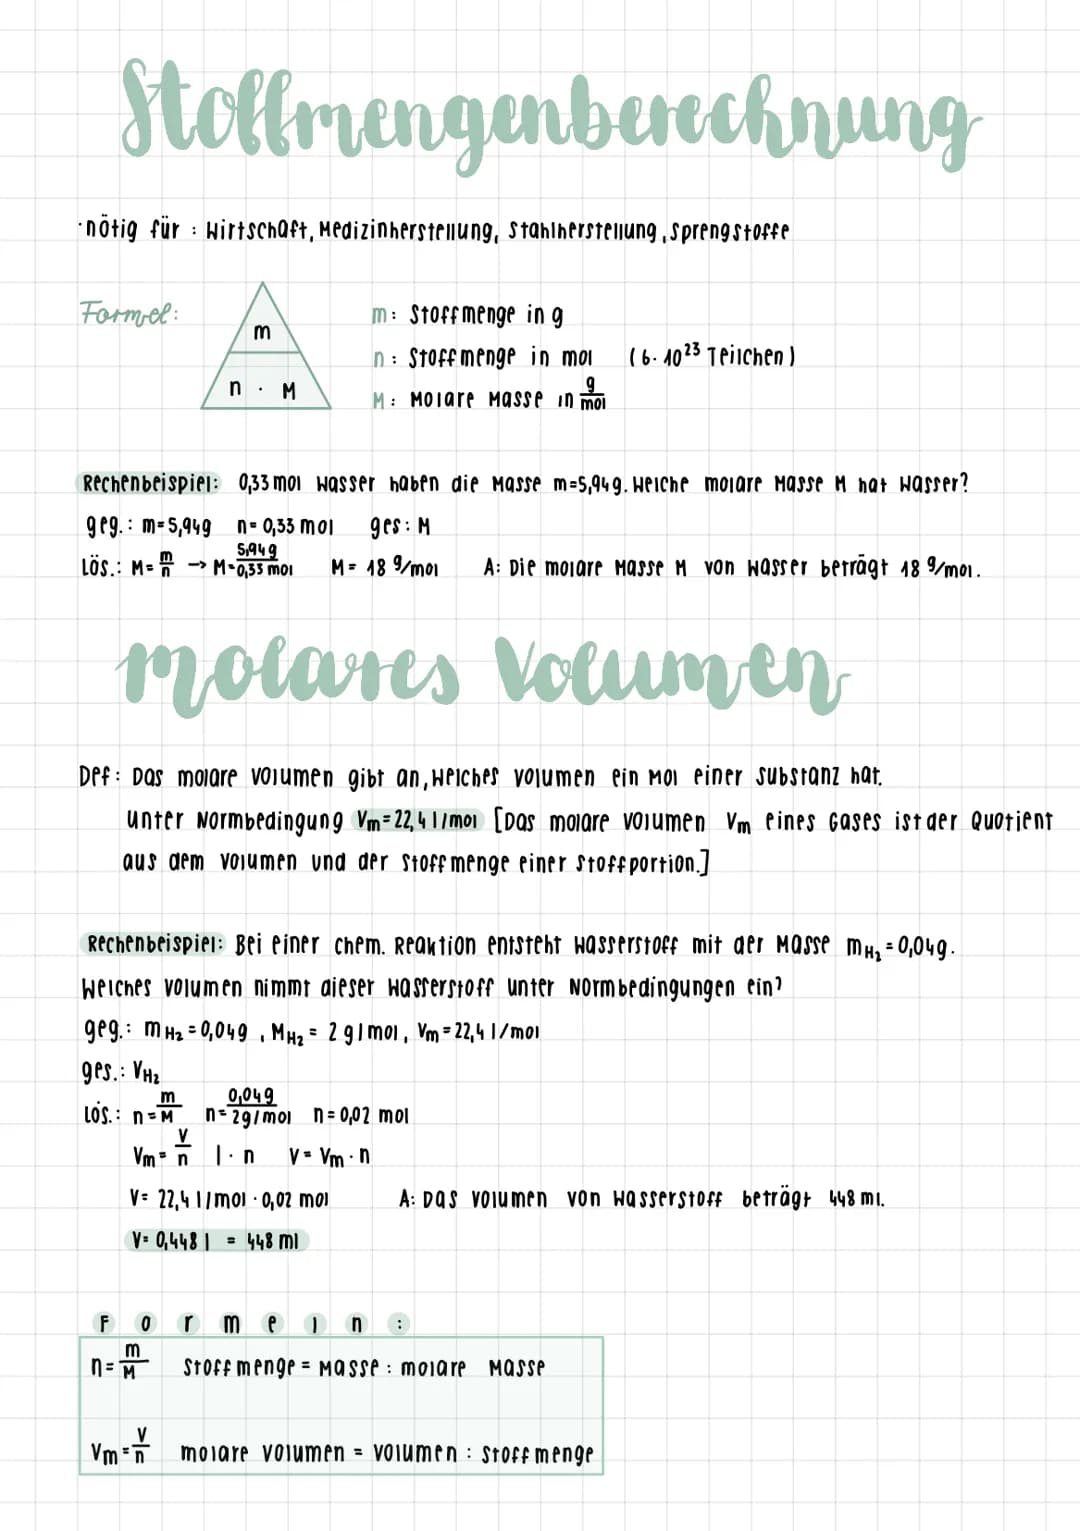 Stoffmengenberechnung
·nötig für : Wirtschaft, Medizinherstellung, Stahlherstellung, Sprengstoffe
Formel:
m
n · M
m: Stoffmenge in g
n: Stoffmenge in mol (6·10²³ Teilchen)
M: Molare Masse in g/mol
Rechenbeispiel: 0,33 mol Wasser haben die Masse m=5,94g. Welche molare Masse M hat Wasser?
geg.: m=5,94g n=0,33 mol ges: M
Lös.: M= m/n → M= 5,94g/0,33 mol M= 18 g/mol A: Die molare Masse M von Wasser beträgt 18 g/mol.
molares Volumen
Def: Das molare Volumen gibt an, welches Volumen ein Mol einer Substanz hat.
Unter Normbedingung Vm=22,4 l/mol [Das molare Volumen Vm eines Gases ist der Quotient
aus dem Volumen und der Stoffmenge einer Stoffportion.]
Rechenbeispiel: Bei einer chem. Reaktion entsteht Wasserstoff mit der Masse mH₂=0,04g.
Welches Volumen nimmt dieser Wasserstoff unter Normbedingungen ein?
geg.: mH₂=0,04g, MH₂= 2 g/mol, Vm=22,4 l/mol
ges.: VH₂
Lös.: n= m/M n= 0,04g/2g/mol n=0,02 mol
Vm= V/n |·n V= Vm·n
V= 22,4 l/mol · 0,02 mol A: Das Volumen von Wasserstoff beträgt 448 ml.
V= 0,448 l = 448 ml
Formeln:
n= m/M Stoffmenge = Masse : molare Masse
Vm= V/n molare Volumen = Volumen : Stoffmenge